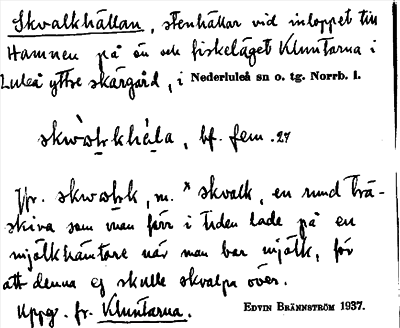 Skvalkhällan, stenhällar vid inloppet till
Hamnen på ön och fiskeläget Kluntarna i
Luleå yttre skärgård, i Nederluleå sn o. tg. Norrb. l.
bf. fem. 27
Jfr. m. *skvalk, en rund trä-
skiva som man förr i tiden lade på en
mjölkhämtare när man bar mjölk, för
att denna ej skulle skvalpa över.
Uppg. fr. Kluntarna. EDVIN BRÄNNSTRÖM 1937.